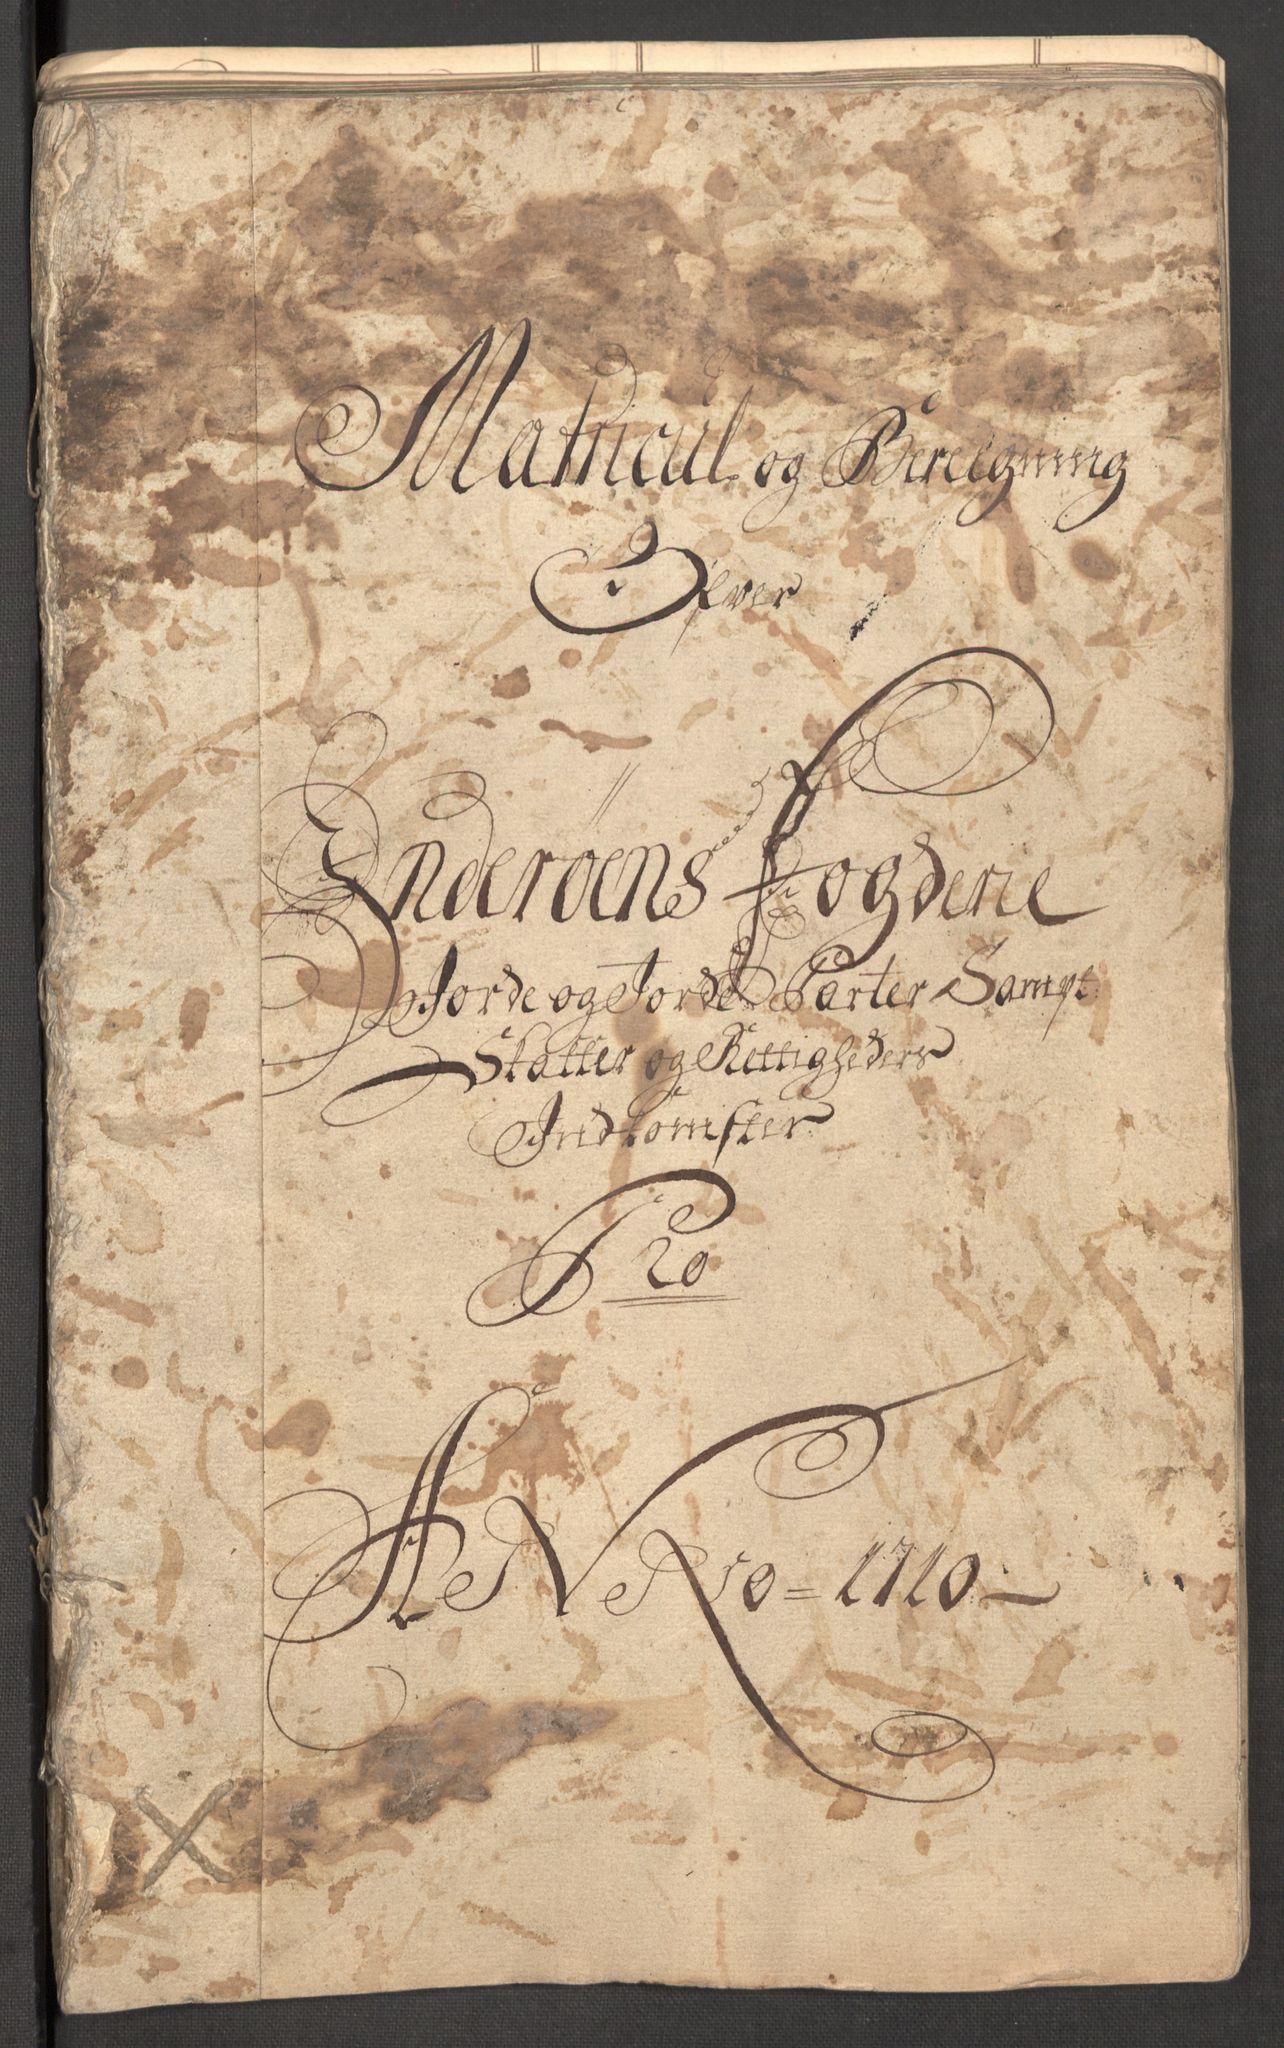 Matricul og Beregning
Ofver
Ynderøens Fogderie
Jorde og Jorde Parter Sampt
Skatter og Rettigheders
Indkomster
Pro
ANNO = 1710